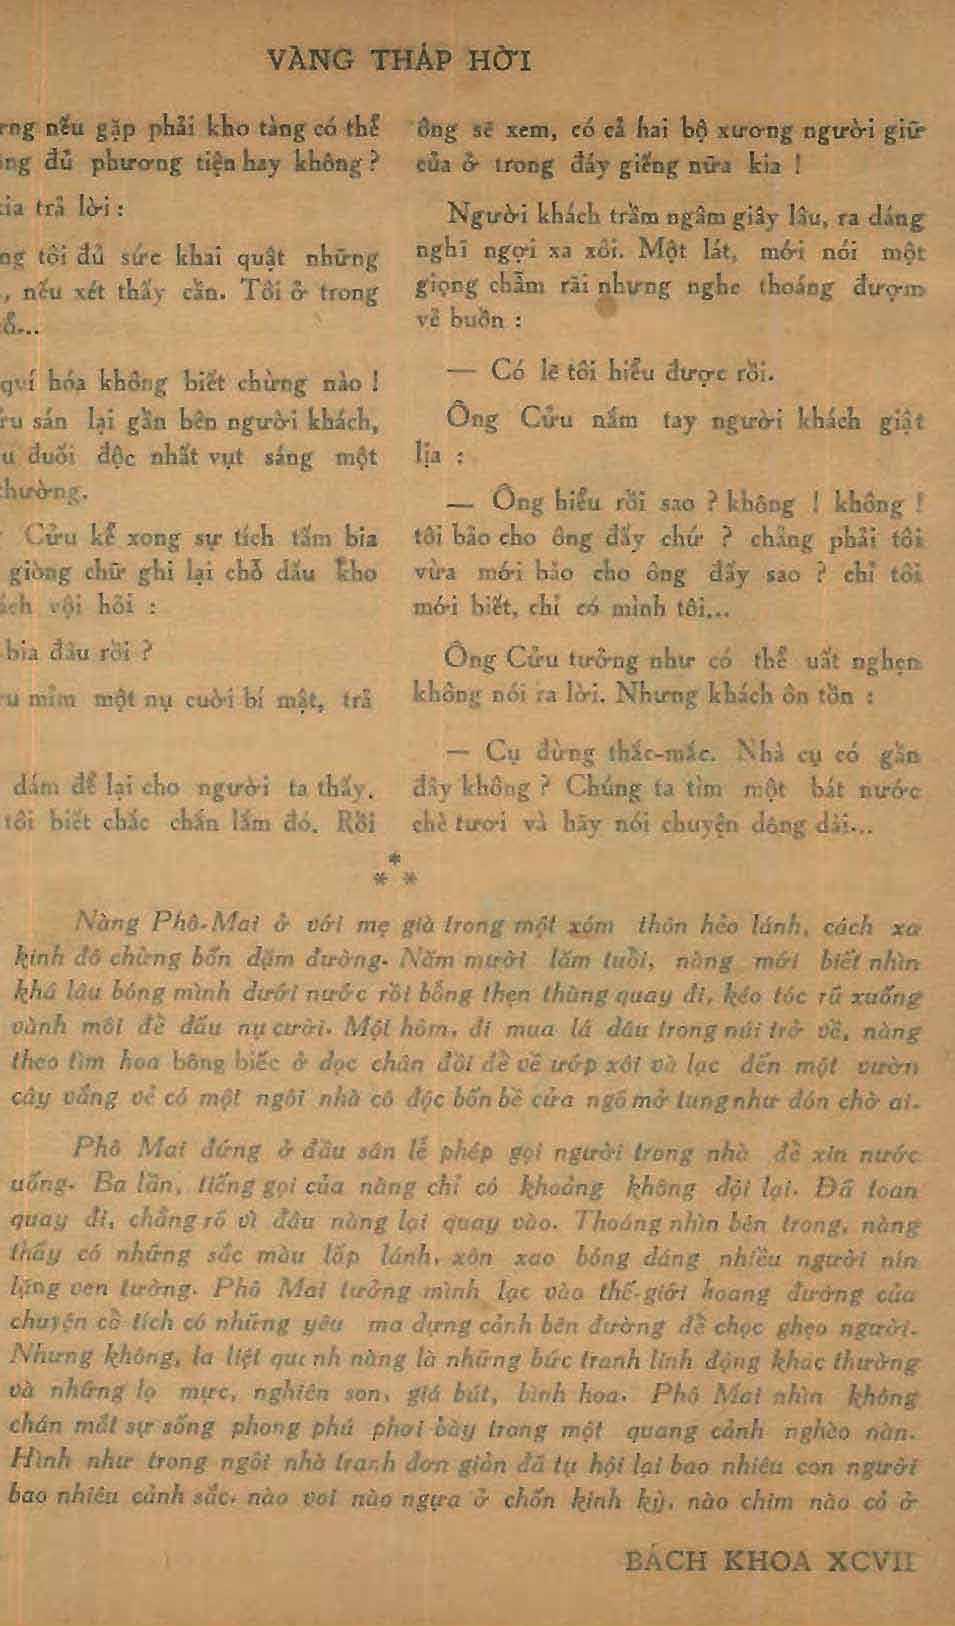 VÀNG THÁP HỜI
nếu gặp phải kho tàng có thể
đủ phương tiện hay không ?
trả lời :
tôi đủ sức khai quật những
nếu xét thấy cần. Tôi ở trong
quí hóa không biết chừng nào !
sán lại gần bên người khách,
đuối độc nhất vụt sáng một
thường.
Cửu kể xong sự tích tấm bia
giòng chữ ghi lại chỗ dấu kho
vội hỏi :
bia đâu rồi ?
mỉm một nụ cười bí mật, trả
dám để lại cho người ta thấy.
tôi biết chắc chắn lắm đó. Rồi
ông sẽ xem, có cả hai bộ xương người giữ
của ở trong đáy giếng nữa kia !
Người khách trầm ngâm giây lâu, ra dáng
nghĩ ngợi xa xôi. Một lát, mới nói một
giọng chậm rãi nhưng nghe thoáng đượm
vẻ buồn :
— Có lẽ tôi hiểu được rồi.
Ông Cửu nắm tay người khách giật
lịa :
— Ông hiểu rồi sao ? không ! không !
tôi bảo cho ông đấy chứ ? chẳng phải tôi
vừa mới bảo cho ông đấy sao ? chỉ tôi
mới biết, chỉ có mình tôi...
Ông Cửu tưởng như có thể uất nghẹn
không nói ra lời. Nhưng khách ôn tồn :
— Cụ đừng thắc-mắc. Nhà cụ có gần
đây không ? Chúng ta tìm một bát nước
chè tươi và hãy nói chuyện dông dài...
*
* *
Nàng Phô-Mai ở với mẹ già trong một xóm thôn hẻo lánh, cách xa
kinh đô chừng bốn dặm đường. Năm mười lăm tuổi, nàng mới biết nhìn
khá lâu bóng mình dưới nước rồi bỗng thẹn thùng quay đi, kéo tóc rũ xuống
vành môi để dấu nụ cười. Một hôm, đi mua lá dâu trong núi trở về, nàng
theo tìm hoa bông biếc ở dọc chân đồi để về ướp xôi và lạc đến một vườn
cây vắng vẻ có một ngôi nhà cô độc bốn bề cửa ngõ mở tung như đón chờ ai.
Phô Mai đứng ở đầu sân lễ phép gọi người trong nhà để xin nước
uống. Ba lần, tiếng gọi của nàng chỉ có khoảng không dội lại. Đã toan
quay đi, chẳng rõ vì đâu nàng lại quay vào. Thoáng nhìn bên trong, nàng
thấy có những sắc màu lấp lánh, xôn xao bóng dáng nhiều người nín
lặng ven tường. Phô Mai tưởng mình lạc vào thế-giới hoang đường của
chuyện cổ tích có những yêu ma dựng cảnh bên đường để chọc ghẹo người.
Nhưng không, la liệt quanh nàng là những bức tranh linh động khác thường
và những lọ mực, nghiên son, giá bút, bình hoa. Phô Mai nhìn không
chán mắt sự sống phong phú phơi bày trong một quang cảnh nghèo nàn.
Hình như trong ngôi nhà tranh đơn giản đã tụ hội lại bao nhiêu con người
bao nhiêu cảnh sắc, nào voi nào ngựa ở chốn kinh kỳ, nào chim nào cỏ ở
BÁCH KHOA XCVII